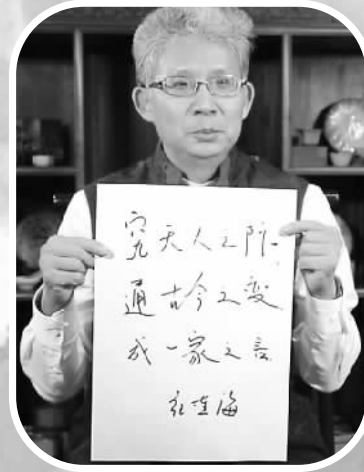 究天人之际
通古今之变
成一家之言
纪连海